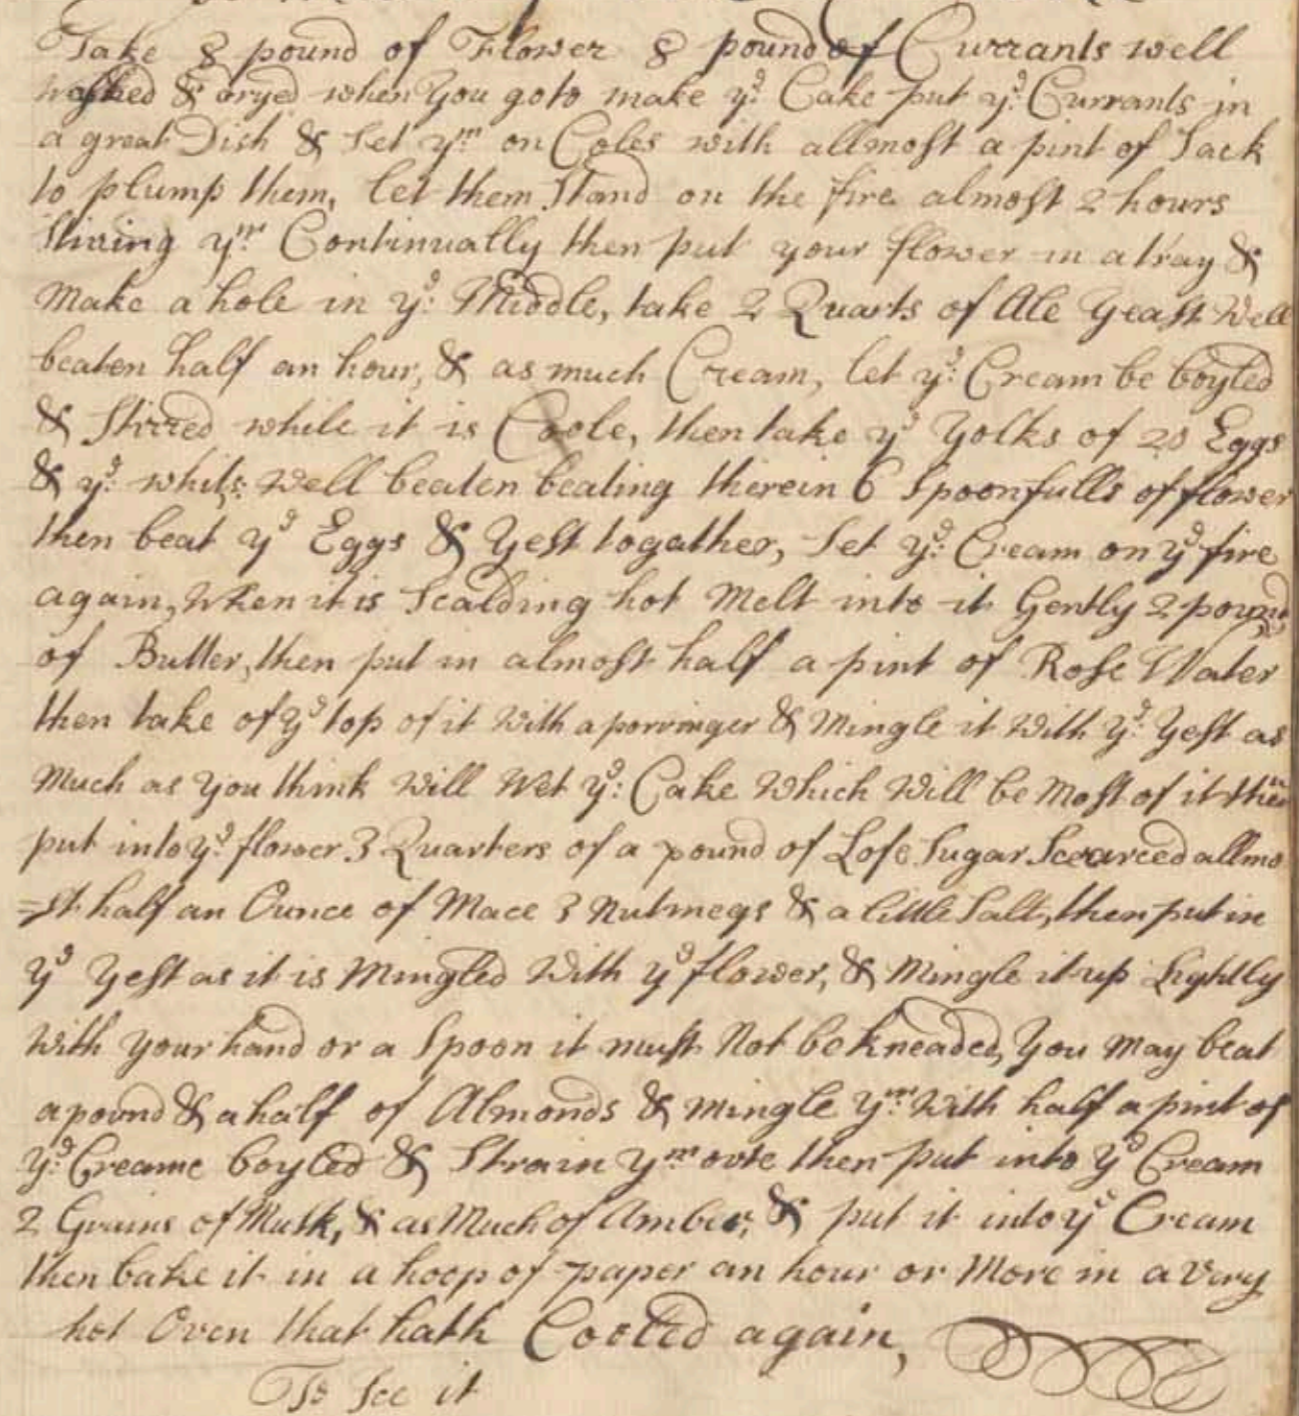 Take 8 pound of Flower 8 pound of Currants well
washed & dryed when you go to make ye: Cake put ye: Currants in
a great Dish & set ym on Coles with allmost a pint of Sack
to plump them, let them Stand on the fire almost 2 hours
stiring ym Continually then put your flower in a tray &
Make a hole in ye: Middle, take 2 Quarts of Ale Yeast Well
beaten half an hour, & as much Cream, let ye: Cream be boyled
& Stirred while it is Coole, then take ye Yolks of 20 Eggs
& ye: whits: Well beaten beating therein 6 Spoonfulls of flower
then beat ye Eggs & Yest togather, Set ye: Cream on ye fire
again, When it is Scalding hot Melt into it Gently 2 pound
of Butter, then put in almost half a pint of Rose Water
then take of ye top of it With a porringer & Mingle it With ye: Yest as
Much as you think Will Wet ye: Cake Which Will be Most of it then
put into ye: flower 3 Quarters of a pound of Lofe Sugar Scearced allmo
=st half an Ounce of Mace 3 Nutmegs & a little Salt, then put in
ye Yest as it is Mingled With ye flower, & Mingle it up Lightly
With your hand or a Spoon it must Not be kneaded, You May beat
a pound & a half of Almonds & Mingle ym: With half a pint of
ye: Creame boyled & Strain ym oute then put into ye Cream
2 Grains of Musk, & as Much of Amber, & put it into ye Cream
then bake it in a hoop of paper an hour or More in a Very
hot Oven that hath Cooled again,
To Ice it